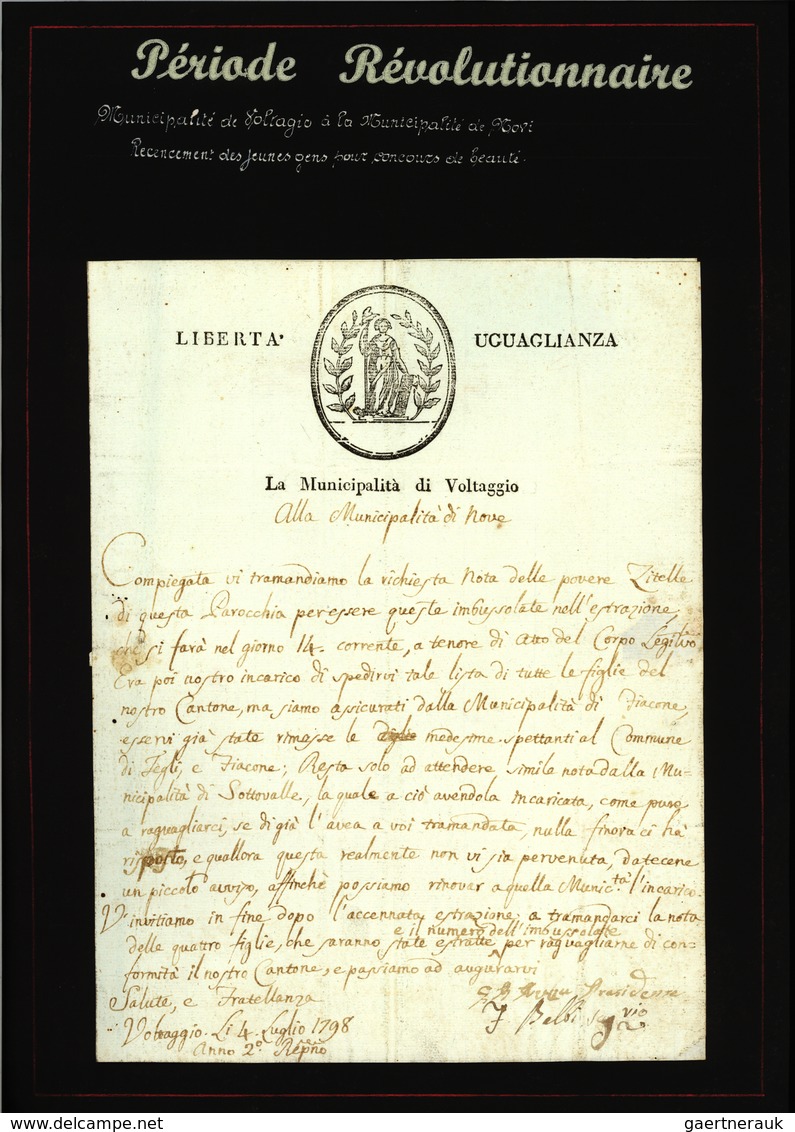 Période Révolutionnaire
Municipalité de Voltagio à la Municipalité de Novi
Recencement des jeunes gens pour concours de beauté.
LIBERTA' UGUAGLIANZA
La Municipalità di Voltaggio
Alla Municipalità di Nove
Compiegata vi tramandiamo la richiesta Nota delle povere Zitelle
di questa Parocchia per essere queste imbussolate nell'estrazione,
che si farà nel giorno 14. corrente, a tenore di Atto del Corpo Legis.vo
Era poi nostro incarico di spedirvi tale lista di tutte le figlie del
nostro Cantone, ma siamo assicurati dalla Municipalità di Fiacone,
esservi già state rimesse le medesime spettanti al Commune
di Tegli, e Fiacone; Resta solo ad attendere simile nota dalla Mu-
nicipalità di Sottovalle, la quale a ciò avendola incaricata, come pure
a raguagliarci, se di già l'avea a voi tramandata, nulla finora ci hà
risposto, e quallora questa realmente non vi sia pervenuta, datecene
un piccolo avviso, affinchè possiamo rinovar a quella Munic.tà l'incarico.
V'invitiamo in fine dopo l'accennata estrazione, a tramandarci la nota
e il numero dell'imbussolate
delle quattro figlie, che saranno state estratte per raguagliarne di con=
formità il nostro Cantone, e passiamo ad augurarvi
Salute, e Fratellanza
Presidente
Voltaggio. Li 4. Luglio 1798
F Balbi
Anno 2.o
www.delcampe.net
gaertnerauk